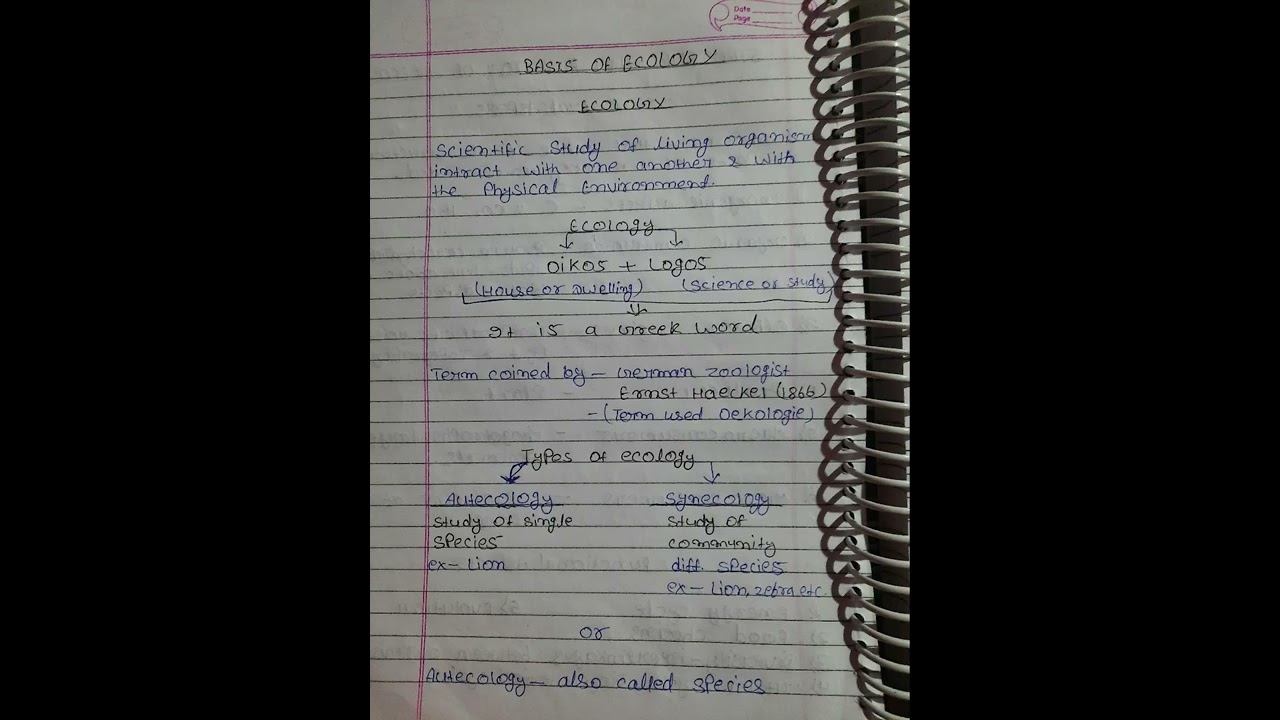 Date
Page
BASIS OF ECOLOGY
ECOLOGY
Scientific Study of living organism
intract with one another & with
the Physical Environment.
Ecology
Oikos + Logos
(House or Dwelling) (Science or study)
It is a Greek word
Term coined by - German zoologist
Ernst Haeckel (1866)
- (Term used Oekologie)
Types of ecology
Autecology Synecology
Study of single Study of
Species community
ex- Lion diff. Species
ex- Lion, zebra etc.
or
Autecology - also called species